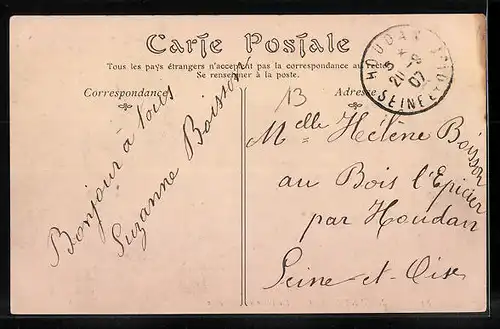 Carte Postale
Tous les pays étrangers n'acceptent pas la correspondance au recto
Se renseigner à la poste.
Correspondance
Adresse
13
Bonjour à tous
Suzanne Boisson
Melle Hélène Boisson
au Bois l'Epicier
par Houdan
Seine-et-Oise
HOUDAN
20 -8
07
SEINE